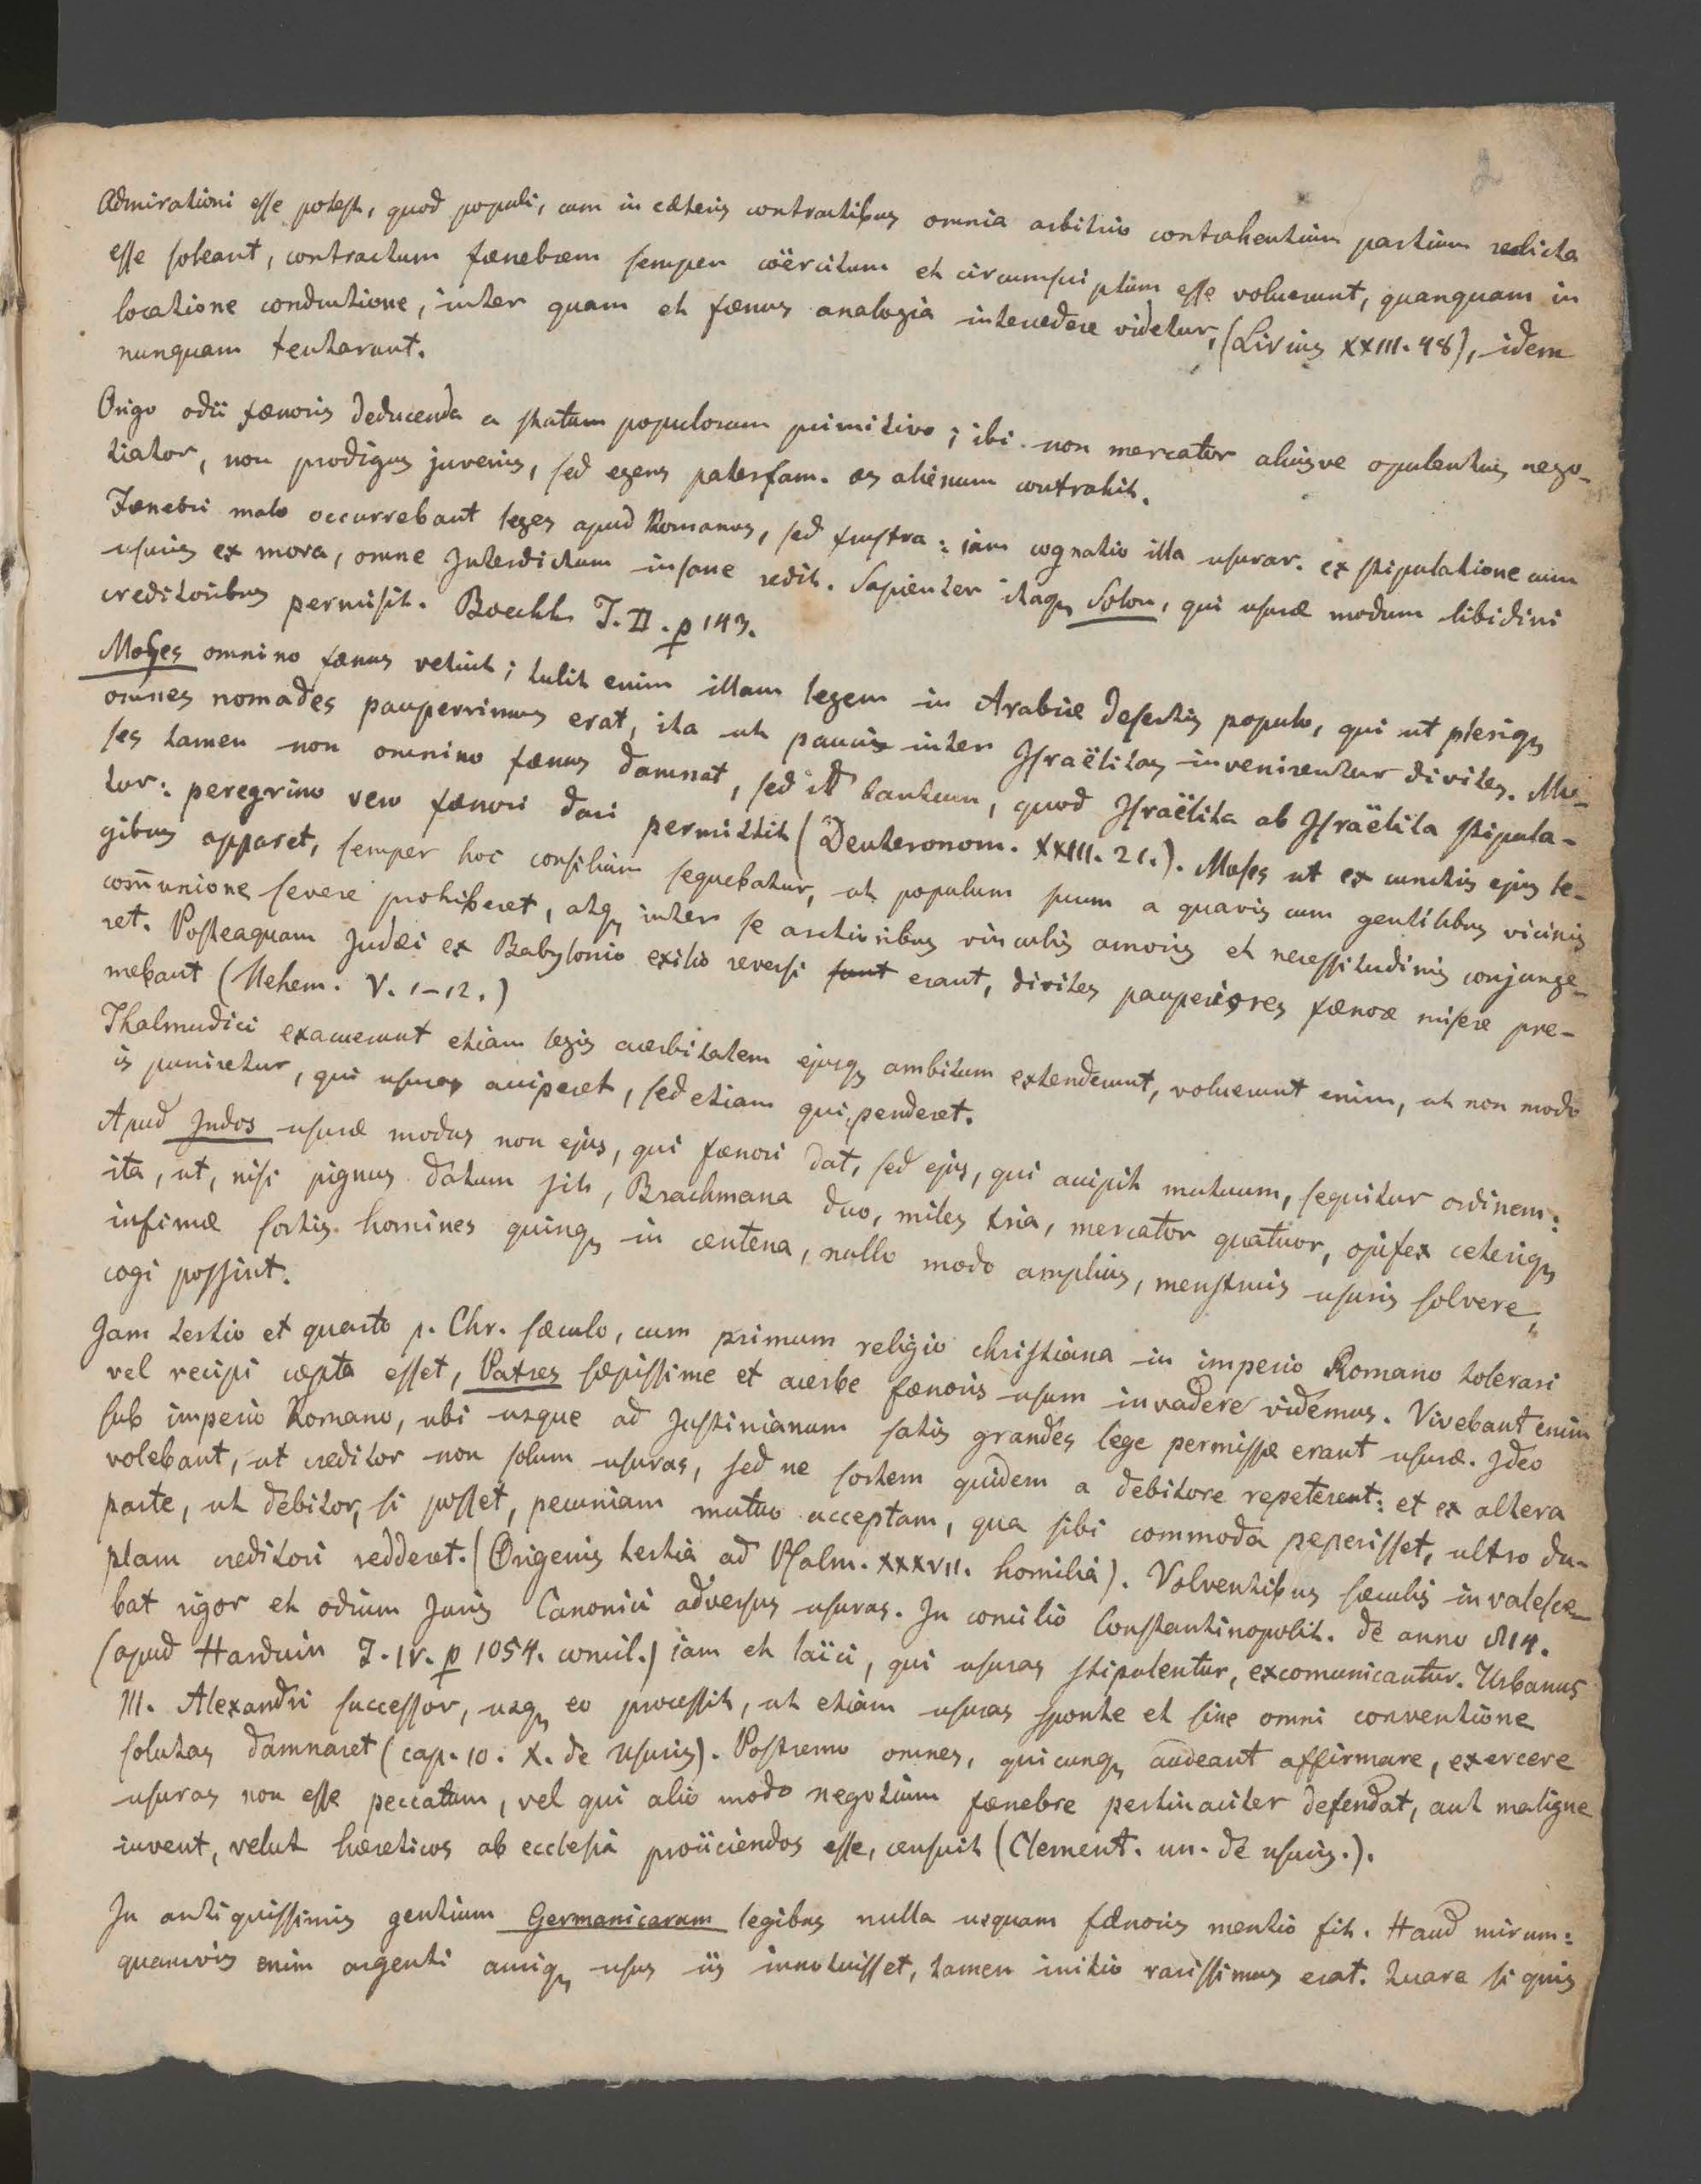 2
Admirationi esse potest, quod populi, cum in cæteris contractibus omnia arbitrio contrahentium partium relicta
esse soleant, contractum fænebrem semper coërcitum et circumscriptum esse voluerunt, quanquam in
locatione conductione, inter quam et fænus analogia intercedere videtur, (Livius XXIII. 48), idem
nunquam tentarunt.
Origo odii fænoris deducenda a statum populorum primitivo; ibi non mercator aliusve opulentus nego-
tiator, non prodigus juvenis, sed egens paterfam. æs alienum contrahit.
Fænebri malo occurrebant leges apud Romanos, sed frustra: iam cognatio illa usurar. ex stipulatione cum
usuris ex mora, omne Interdictum insane redit. Sapienter itaq Solon, qui usuræ modum libidini
creditoribus permisit. Boeckh T. II. p 143.
Moses omnino fænus vetuit; tulit enim illam legem in Arabiæ desertis populo, qui ut pleriq
omnes nomades pauperrimus erat, ita ut paucis inter Israëlitas invenirentur divites. Mo-
ses tamen non omnino fænus damnat, sed id tantum, quod Israëlita ab Israëlita stipula-
tor: peregrino vero fænori dari permittit (Deuteronom. XXIII. 21.). Moses ut ex cunctis ejus le-
gibus apparet, semper hoc consilium sequebatur, ut populum suum a quavis cum gentilibus vicinis
comunione severe prohiberet, atq inter se arctioribus vinculis amoris et necessitudinis conjunge-
ret. Posteaquam Judæi ex Babylonio exilio reversi sunt erant, divites pauperiores fænore misere pre-
mebant (Nehem. V. 1-12.)
Thalmudici exacuerunt etiam legis acerbitatem ejusq ambitum extenderunt, voluerunt enim, ut non modo
is puniretur, qui usuras acciperet, sed etiam qui penderet.
Apud Indos usuræ modus non ejus, qui fænori dat, sed ejus, qui accipit mutuum, sequitur ordinem:
ita, ut, nisi pignus datum sit, Brachmana duo, miles tria, mercator quatuor, opifex ceteriq
infimæ sortis homines quinq in centena, nullo modo amplius, menstruis usuris solvere,
cogi possint.
Jam tertio et quarto p. Chr. sæculo, cum primum religio christiana in imperio Romano tolerari
vel recipi cœpta esset, Patres sæpissime et acerbe fænoris usum invadere videmus. Vivebant enim
sub imperio Romano, ubi usque ad Justinianum satis grandes lege permissæ erant usuræ. Ideo
volebant, ut creditor non solum usuras, sed ne sortem quidem a debitore repeterent: et ex altera
parte, ut debitor, si posset, pecuniam mutuo acceptam, qua sibi commoda peperisset, ultro du-
plam creditori redderet. (Origenis tertia ad Psalm. XXXVII. homilia). Volventibus sæculis invalesce-
bat rigor et odium Juris Canonici adversus usuras. In concilio Constantinopolit. de anno 814.
(apud Harduin T. IV. p 1054. concil.) iam et laïci, qui usuras stipulentur, excomunicantur. Urbanus
III. Alexandri successor, usq eo processit, ut etiam usuras sponte et sine omni conventione
solutas damnaret (cap. 10. X. de Usuris). Postremo omnes, quicunq audeant affirmare, exercere
usuras non esse peccatum, vel qui alio modo negotium fænebre pertinaciter defendat, aut maligne
iuvent, velut hæreticos ab ecclesia proiiciendos esse, censuit (Clement. un. de usuris.).
In antiquissimis gentium Germanicarum legibus nulla usquam fænoris mentio fit. Haud mirum:
quamvis enim argenti auriq usus iis innotuisset, tamen initio rarissimus erat. Quare si quis